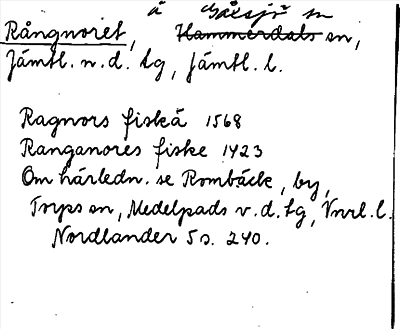 å Gåxsjö sn
Rångnoret, Hammerdals sn,
Jämtl. n. d. tg, Jämtl. l.
Ragnors fiskå 1568
Ranganores fiske 1423
Om härledn. se Rombäck, by,
Torps sn, Medelpads v. d. tg, Vnrl. l.
Nordlander 5 s. 240.